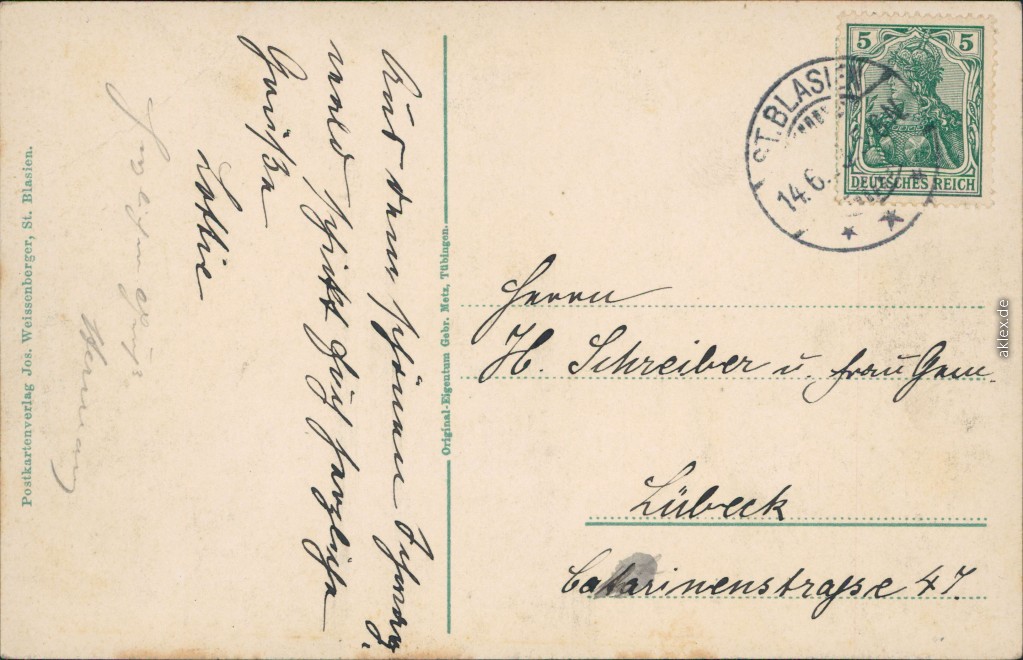 Aus dem schönen Schwarz-
wald schickt Euch herzliche
Grüße
Lottie
Herzlichen Gruß
Hermann
Postkartenverlag Jos. Weissenberger, St. Blasien.
Original-Eigentum Gebr. Metz, Tübingen.
5 5
DEUTSCHES REICH
ST. BLASIEN
14.6.
Herrn
H. Schreiber u. Frau Gem.
Lübeck
Catarinenstraße 47.
aklex.de